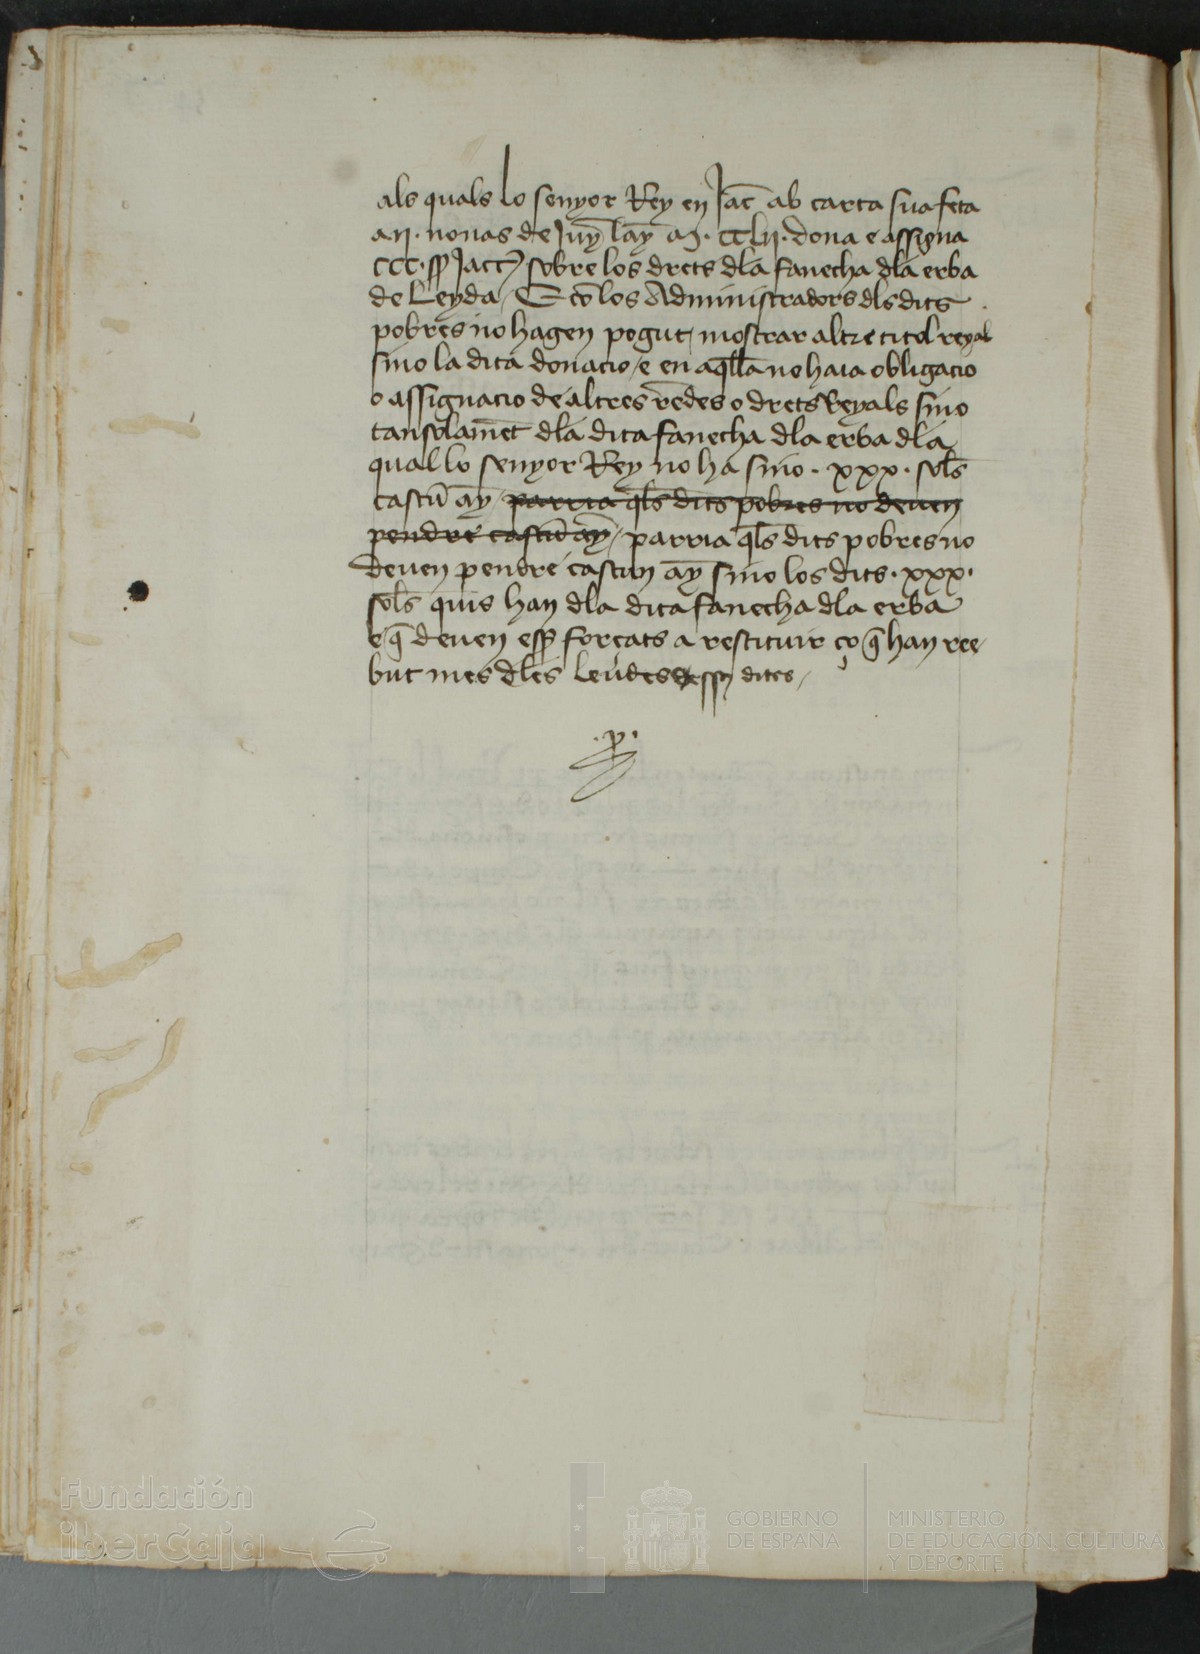 als quals lo senyor Rey en Jac̄ ab carta sua feta
a ii· nonas de Juỹ lāy M· CCLii· dona e assigna
CCC· ss̄ Jacc̄ sobre los drets dla fanecha dla erba
de Leyda / E cō los Administradors dls dits
pobres no hagen pogut / mostrar altre titol reyal
sino la dita donacio / e en aq̄lla no haia obligacio
o assignacio de altres rēdes o drets Reyals sino
tansolamēt dla dita fanecha dla erba dla
qual lo senyor Rey no ha sino · xxx · sol̄s
cascū āy / parria q̄ls dits pobres no deuen
pendre cascū āy / parria q̄ls dits pobres no
deuen pendre cascun āy sino los dits · xxx ·
sol̄s quis han dla dita fanecha dla erba
e q̄ deuen ess̄ forçats a restituir ço q̄ han ree
but mes dles leudes dites /
·p·
Fundación
iberCaja
GOBIERNO
DE ESPAÑA
MINISTERIO
DE EDUCACIÓN, CULTURA
Y DEPORTE